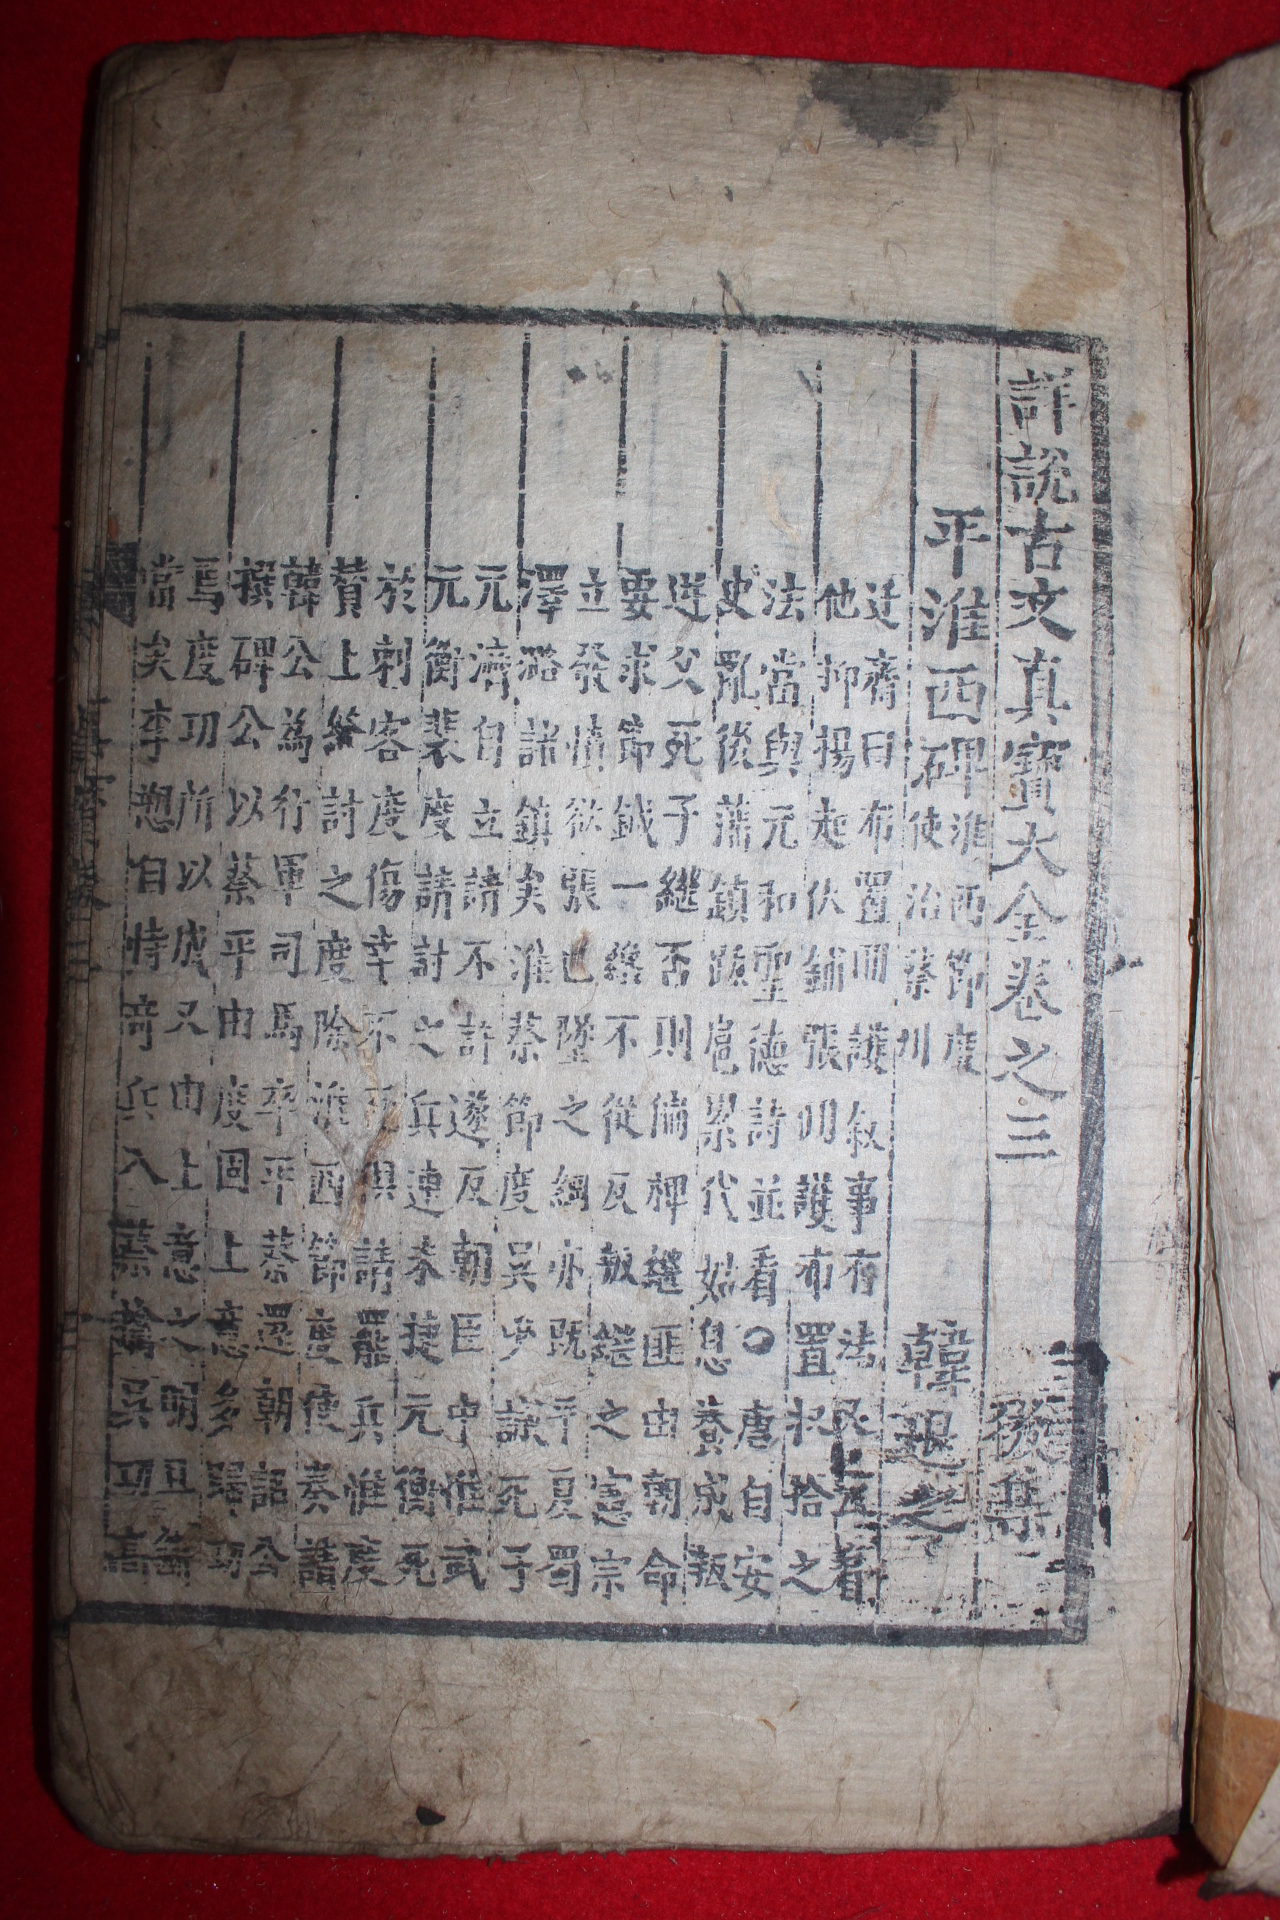 詳說古文真寶大全卷之三 後集
平淮西碑 淮西節度
使治蔡州 韓退之
迂齋曰布置回護叙事有法
他抑揚起伏鋪張回護布置收拾之
法當與元和聖德詩並看○唐自安
史亂後藩鎮跋扈累代姑息養成叛
逆父死子繼否則偏裨繼匪由朝命
要求節鉞一繼不從反叛繼之憲宗
立發憤欲張已墜之綱亦既平夏蜀
澤潞諸鎮矣淮蔡節度吳少誠死子
元濟自立請不許遂反朝臣中惟武
元衡裴度請討之兵連未捷元衡死
於刺客度傷幸不死俱請罷兵惟度
贊上終討之度除淮西節度使奏請
韓公為行軍司馬卒平蔡還朝詔公
撰碑公以蔡平由度固上意多歸功
焉度功所以成又由上意之明且
當矣李愬自恃奇兵入蔡擒吳功高
真寶卷三